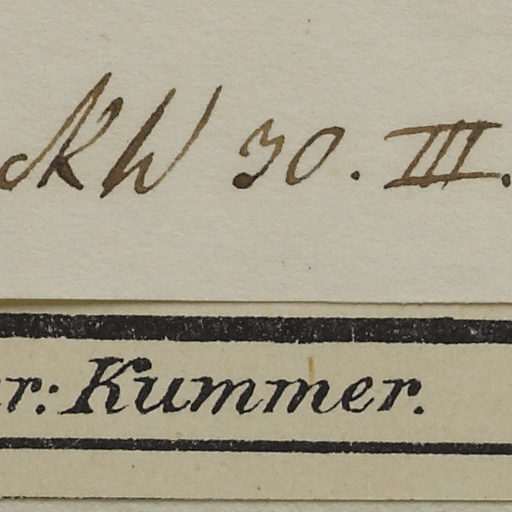 30. III.
r.: Kummer.